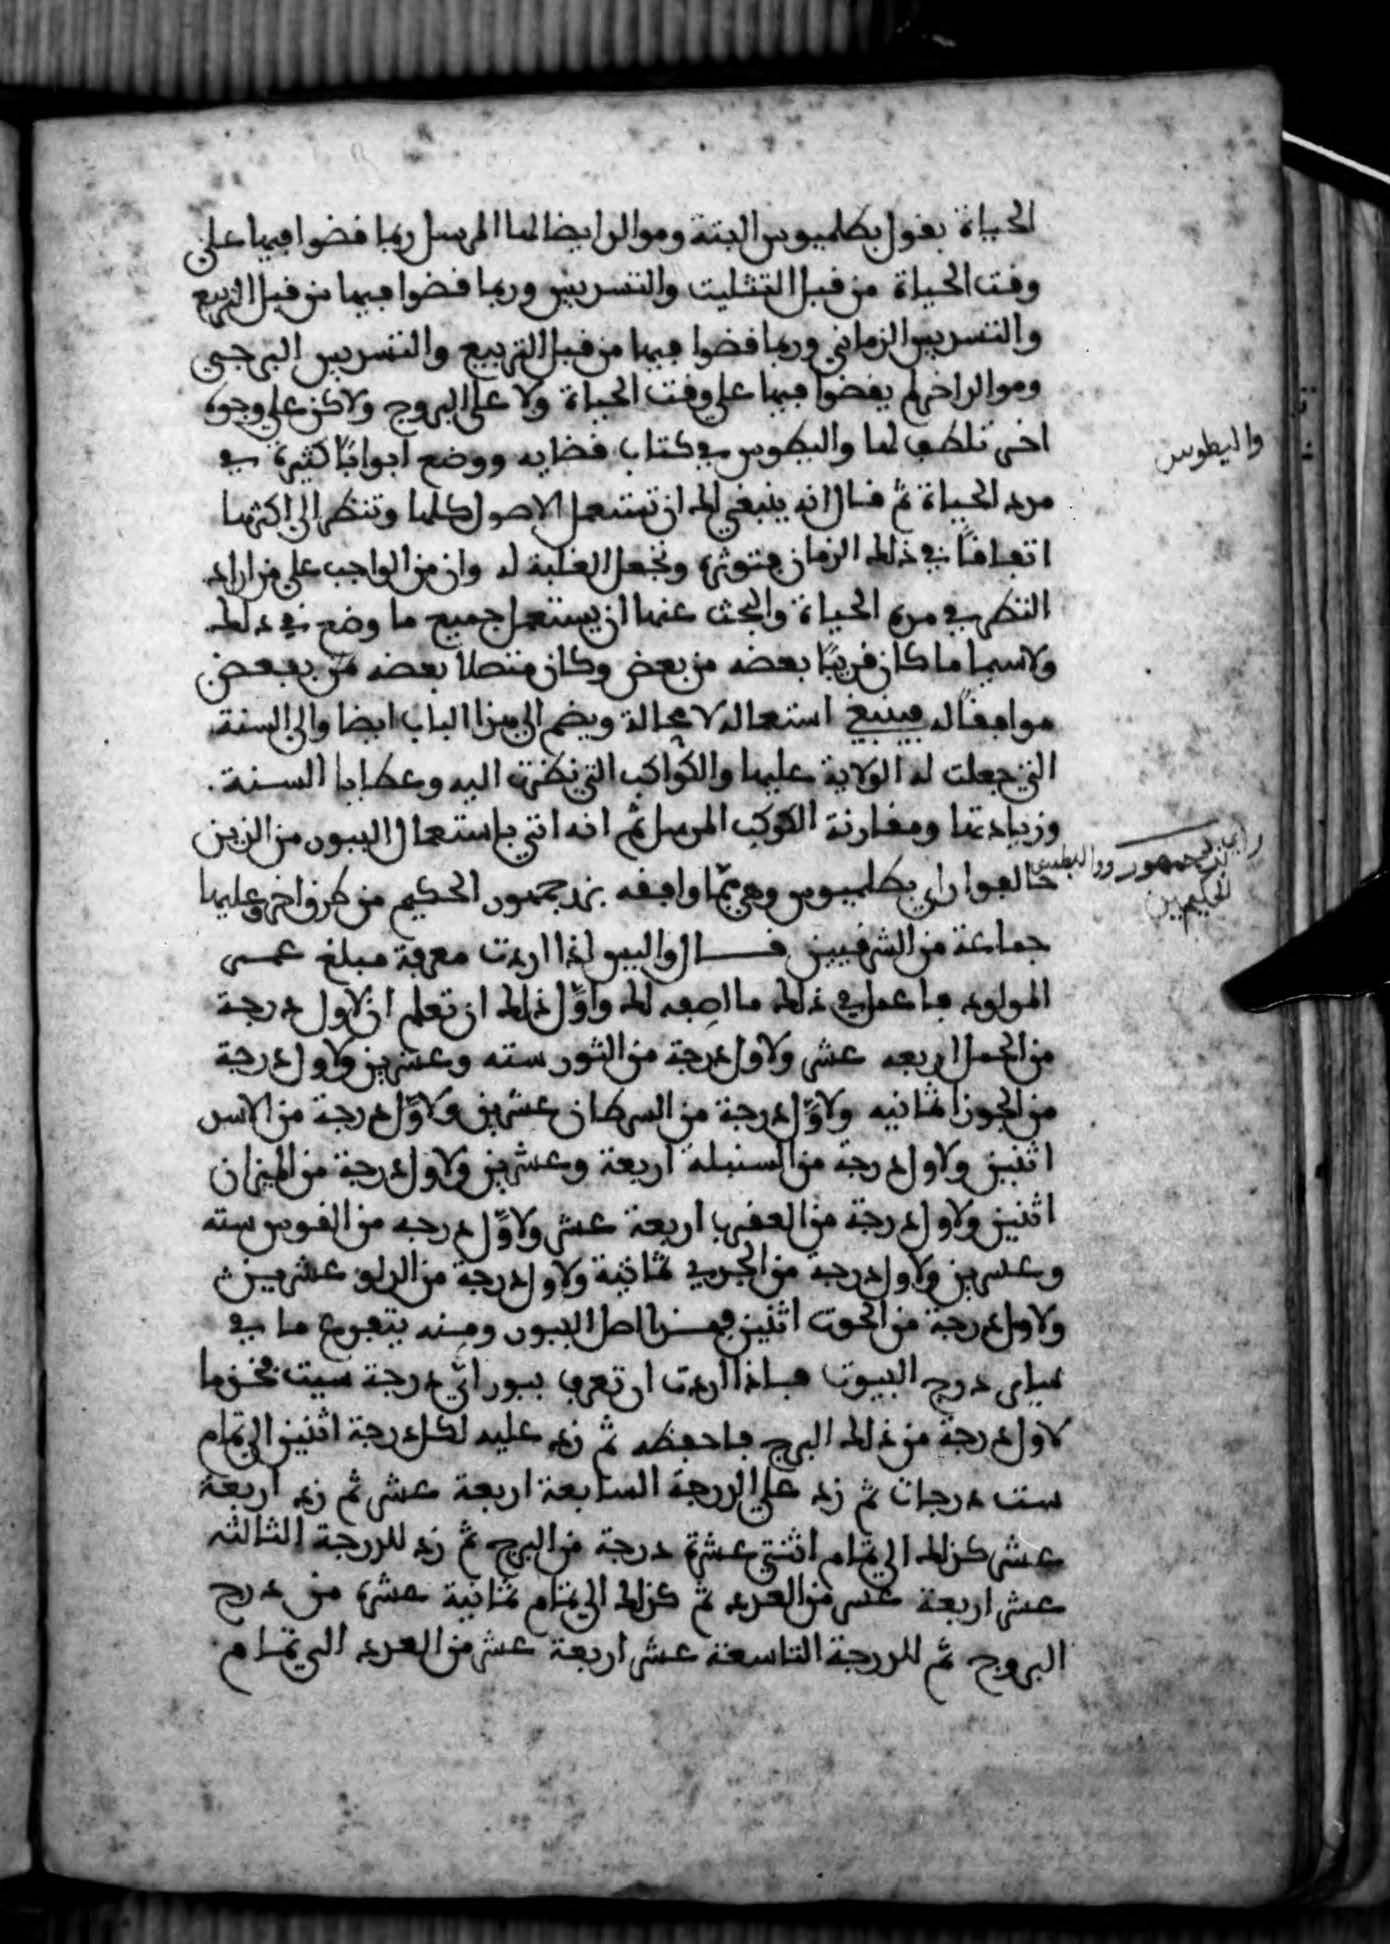 الحياة بقول بطلميوس البتة وهو الذي ايضا لهذا المرسل ربما قضوا فيها على
وقت الحياة من قبل التثليث والتسديس وربما قضوا فيها من قبل التربيع
والتسديس الزماني وربما قضوا فيها من قبل التربيع والتسديس البرجي
ومواليد اخر لم يقضوا فيها على وقت الحياة ولا على البروج ولاكن على وجوه
اخرى تلطف لها واليطوس في كتاب قضايه ووضع ابوابًا كثيرة في
مدد الحياة ثم قال انه ينبغي لك ان تستعمل الاصول كلها وتنظر الى اكثرها
اتفاقًا في ذلك الزمان فتوثره وتجعل الغلبة له وان من الواجب على من اراد
النظر في مدة الحياة والبحث عنها ان يستعمل جميع ما وضع في ذلك
ولاسيما ما كان قريبًا بعضه من بعض وكان متصلا بعضه من بعض
موافقًا له فينبغي استعماله لا محالة ويضم الى هذا الباب ايضا والى السنة
التي جعلت له الولاية عليها والكواكب التي نظرت اليه وعطايا السنة
وزيادتها ومقارنة الكوكب المرسل ثم انه اتى باستعمال البيور من الذين
خالفوا راي بطلميوس وهي مما وافقه بزرجمهور الحكيم من طرف اخر وعليها
جماعة من الشرقيين قال واليس اذا اردت معرفة مبلغ عمر
المولود فاعمل في ذلك ما اصفه لك واوّل ذلك ان تعلم ان لاول درجة
من الحمل اربعه عشر ولاول درجة من الثور سته وعشرين ولاول درجة
من الجوزا ثمانيه ولاوّل درجة من السرطان عشرين ولاوّل درجة من الاسد
اثنين ولاول درجة من السنبلة اربعة وعشرين ولاول درجة من الميزان
اثنين ولاول درجة من العقرب اربعة عشر ولاوّل درجه من القوس سته
وعشرين ولاول درجة من الجدي ثمانية ولاول درجة من الدلو عشرين
ولاول درجة من الحوت اثنين فهذا اصل البيور ومنه يتفرع ما في
ساير درج البيوت فاذا اردت ان تعرف بيور اي درجة شيت فخذ ما
لاول درجة من ذلك البرج فاحفظه ثم زد عليه لكل درجة اثنين الى تمام
ست درجات ثم زد على الدرجة السابعة اربعة عشر ثم زد اربعة
عشر كذلك الى تمام اثنتي عشرة درجة من البرج ثم زد للدرجة الثالثه
عشر اربعة عشر من العدد ثم كذلك الى تمام ثمانية عشره من درج
البروج ثم للدرجة التاسعة عشر اربعة عشر من العدد الى تمام
واليطوس
راي بزرجمهور وواليطس
الحكيمين